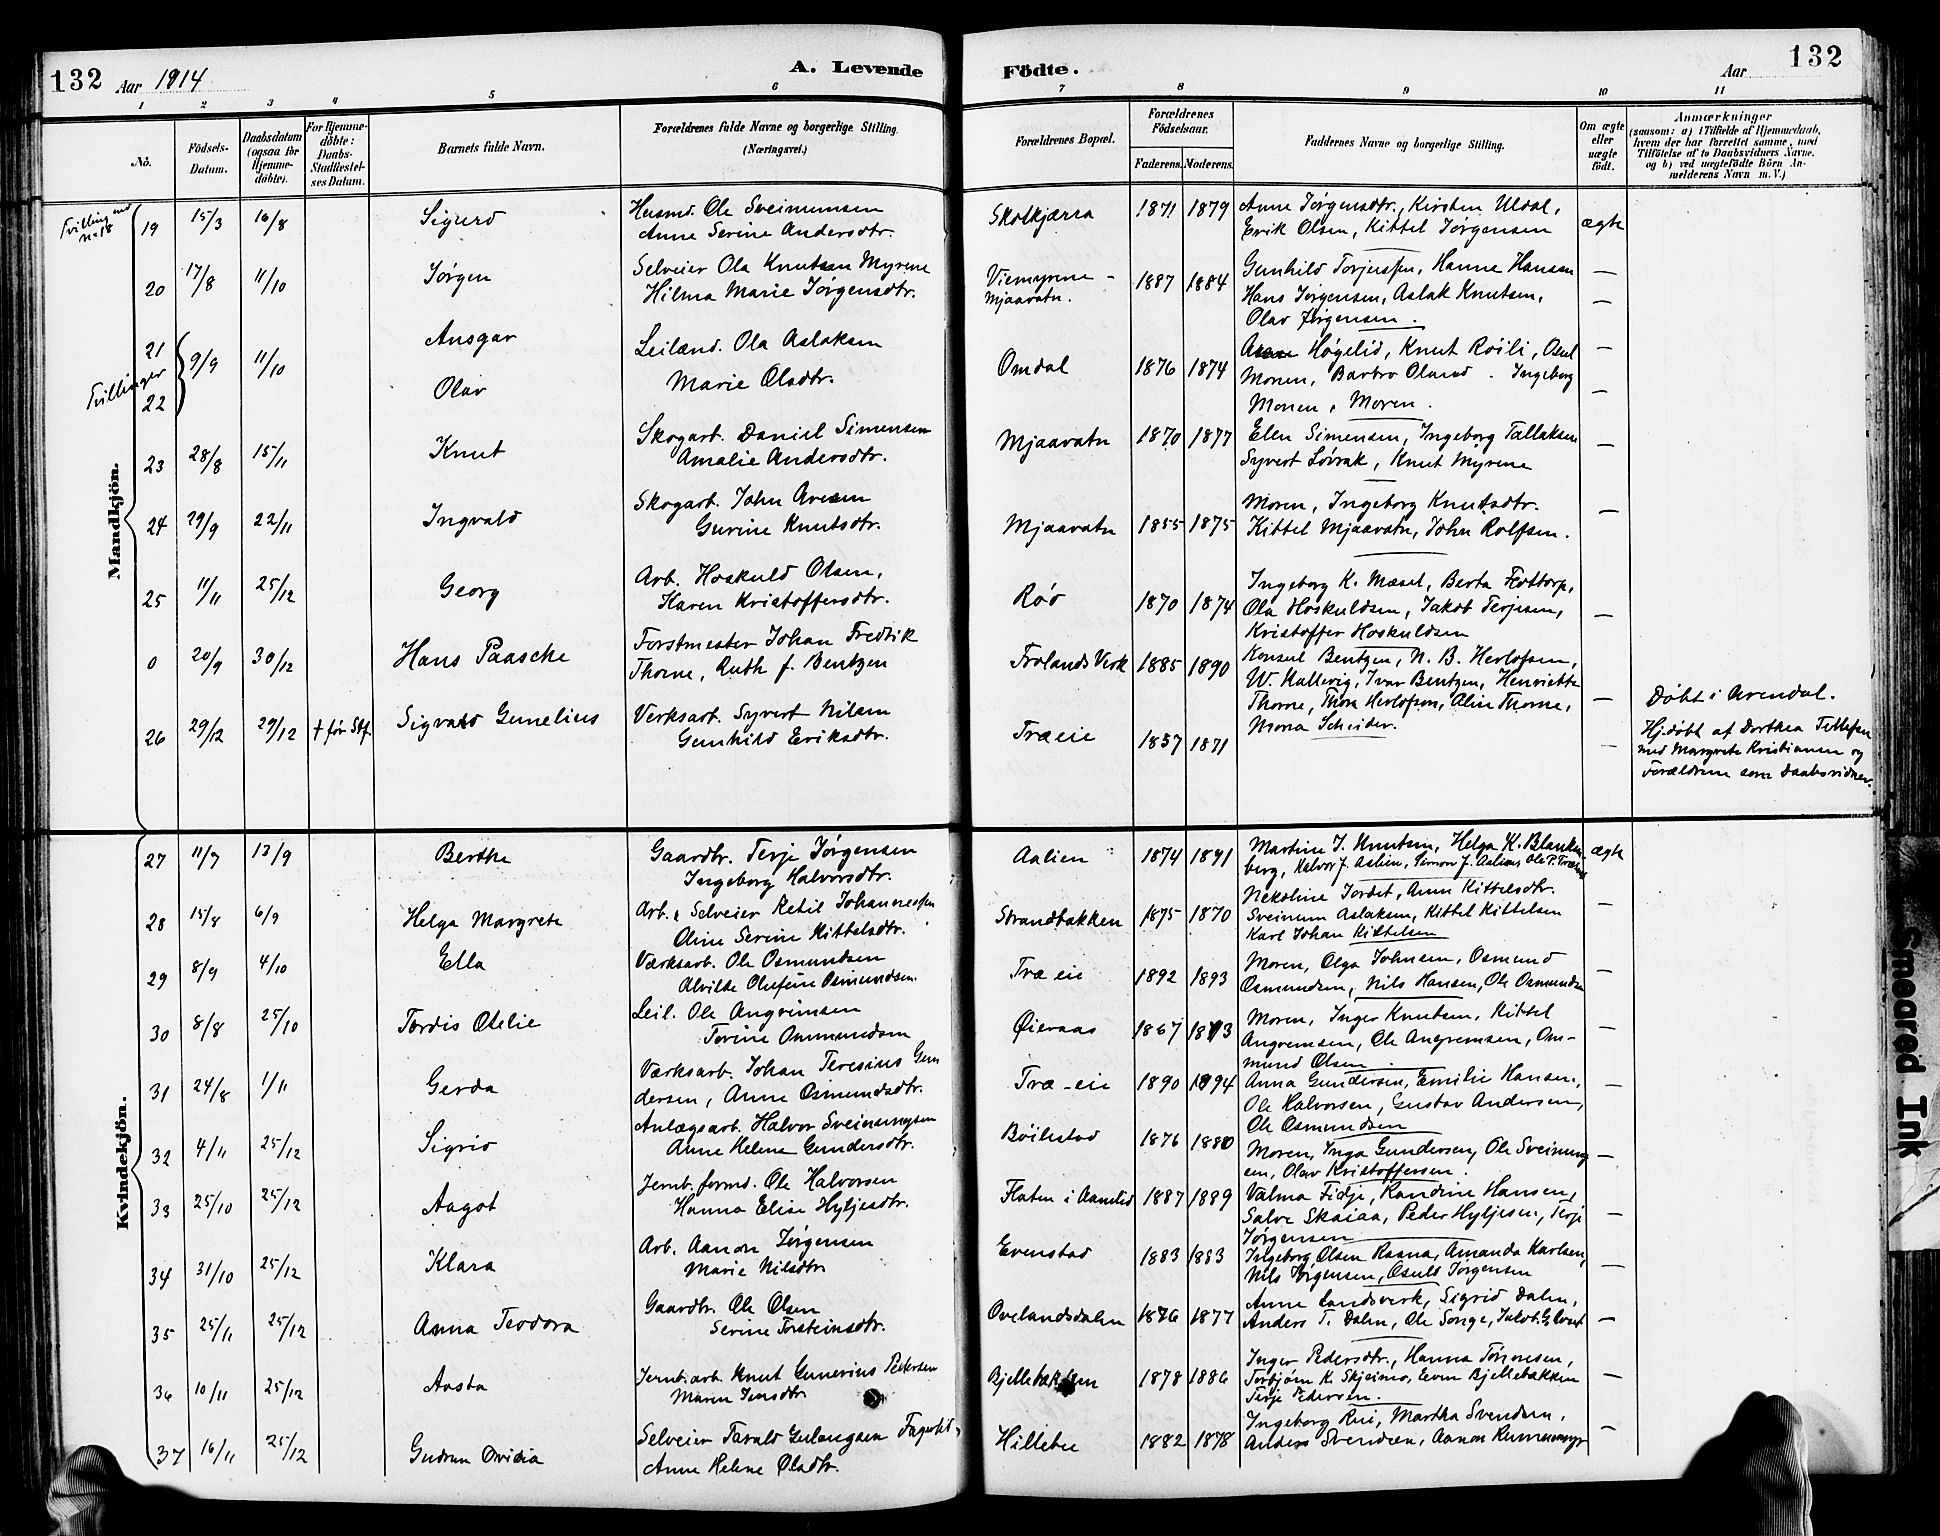 132 Aar 1914 A. Levende Födte. Aar 132
1 2 3 4 5 6 7 8 9 10 11
No.
Födsels-Datum.
Daabsdatum (ogsaa for Hjemme-döbte).
For Hjemme-döbte: Daabs-Stadfæstelses Datum.
Barnets fulde Navn.
Forældrenes fulde Navne og borgerlige Stilling. (Næringsvei.)
Forældrenes Bopæl.
Forældrenes Födselsaar.
Faderens. Moderens.
Faddernes Navne og borgerlige Stilling.
Om ægte eller uægte födt.
Anmærkninger
(saasom: a) i Tilfælde af Hjemmedaab, hvem der har forrettet samme, med Tilföielse af to Daabsvidners Navne, og b) ved uægtefödte Börn Anmelderens Navn m. V.)
Mandkjön.
Tvilling med nr 18
19 15/3 16/8 Sigurd
Husmd. Ole Sveinumsen
Anne Serine Andersdtr.
Skotkjærra 1871 1879
Anne Jørgensdtr., Kirsten Uldal,
Erik Olsen, Kittel Jørgensen
ægte
20 17/8 11/10 Jørgen
Selveier Ola Knutsen Myrene
Hilma Marie Jørgensdtr.
Viemyrene - Mjaavatn. 1887 1884
Gunhild Torjussen, Hanne Hansen
Hans Jørgensen, Aslak Knutsen,
Olav Jørgensen.
—
Tvillinger
21 22 9/9 11/10 Ansgar
Olav
Leilænd. Ola Aslaksen
Marie Olsdtr.
Omdal 1876 1874
Høgelid, Knut Røili,
Monen, Barbro Oland. Ingeborg
Monen, Moren.
—
—
23 28/8 15/11 Knut
Skogarb. Daniel Simensen
Amalie Andersdtr.
Mjaavatn 1870 1877
Elen Simensen, Ingeborg Tallaksen
Syvert Løvrak, Knut Myrene
—
24 29/9 22/11 Ingvald
Skogarb. John Avesen
Gurine Knutsdtr.
Mjaavatn 1855 1875
Moren, Ingeborg Knutsdtr.
Kittel Mjaavatn, John Rolfsen.
—
25 11/11 25/12 Georg
Arb. Hoskuld Olsen,
Karen Kristoffersdtr.
Røo 1870 1874
Ingeborg K. Mæsel, Berta Flottorp,
Ola Hoskuldsen, Jakob Terjesen,
Kristoffer Hoskuldsen
—
0 20/9 30/12 Hans Paasche
Forstmester Johan Fredrik
Thorne, Ruth f. Bentzen
Frolands Verk 1885 1890
Konsul Bentzen, N. B. Herlofsen,
W. Kallevig, Ivar Bentzen, Henriette
Thorne, Thora Herlofson, Aline Thorne,
Mona Scheider.
—
Døbt i Arendal.
26 29/12 29/12 † før Stf. Sigvald Gunelius
Verksarb. Syvert Nilsen
Gunhild Eriksdtr.
Træeie 1857 1871
—
Hj.døbt af Dorthea Tellefsen
med Margrete Kristiansen og
Forældrene som Daabsvidner.
Kvindekjön.
27 11/7 13/9 Berthe
Gaardbr. Terje Jørgensen
Ingeborg Halvorsdtr.
Aalien 1874 1891
Martine J. Knutsen, Helga K. Blanken
berg, Halvor J. Aalien, Gunvor J. Aalien, Ole P.
ægte
28 15/8 6/9 Helga Margrete
Arb. & Selveier Ketil Johannessen
Oline Serine Kittelsdtr.
Strandbakken 1875 1870
Nekoline Jordet, Anne Kittelsdtr.
Sveinum Aslaksen, Kittel Kittelsen
Karl Johan Kittelsen
—
29 8/9 4/10 Ella
Værksarb. Ole Osmundsen
Alvilde Olufine Osmundsen.
Træ eie 1892 1893
Moren, Olga Johnsen, Osmund
Osmundsen, Nils Hansen, Ole Osmundsen
—
30 8/8 25/10 Tordis Otelie
Leil. Ole Angrimsen
Torine Ommundsen
Øieraas 1867 1873
Moren, Inger Knutsen, Kittel
Angremsen, Ole Angremsen, Om-
mund Olsen
—
31 24/8 1/11 Gerda
Værksarb. Johan Teresius Gun
dersen, Anne Osmundsdtr.
Træ-eie 1890 1894
Anna Gundersen, Emilie Hansen,
Ole Halvorsen, Gustav Andersen,
Ole Osmundsen
—
32 4/11 25/12 Sigrid
Anlægsarb. Halvor Sveinungsen
Anne Helene Gundersdtr.
Bøilestad 1876 1880
Moren, Inga Gundersen, Ole Sveinung
sen, Olav Kristoffersen.
—
33 25/10 25/12 Aagot
Jernb.formd. Ole Halvorsen
Hanna Elise Hyljesdtr.
Flaten i Aamlid 1887 1889
Valma Fidje, Randine Hansen,
Salve Skaiaa, Peder Hyljesen, Terje
Jørgensen
—
34 31/10 25/12 Klara
Arb. Aanon Jørgensen
Marie Nilsdtr.
Evenstad 1883 1883
Ingeborg Olsen Raana, Amanda Karlsen,
Nils Jørgensen, Osuld Jørgensen
—
35 25/11 25/12 Anna Teodora
Gaardbr. Ole Olsen
Serine Torsteinsdtr.
Ovelandsdalen 1876 1877
Anne Landsverk, Sigrid Dalen,
Anders T. Dalen, Ole Songe, Jakob
—
36 10/11 25/12 Aasta
Jernb.arb. Knut Gunerius Pedersen
Maren Jensdtr.
Bjellebakken 1878 1886
Inger Pedersdtr., Hanna Tønnesen,
Torbjørn K. Skjeimo, Even Bjellebakken
Terje Pedersen.
—
37 16/11 25/12 Gudrun Ovidia
Selveier Tarald Gulaugsen Fagerli
Anne Helene Olsdtr.
Hillebu 1882 1878
Ingeborg Rui, Martha Svendsen,
Anders Svendsen, Aanon Rummemyr
—
Smeared Ink